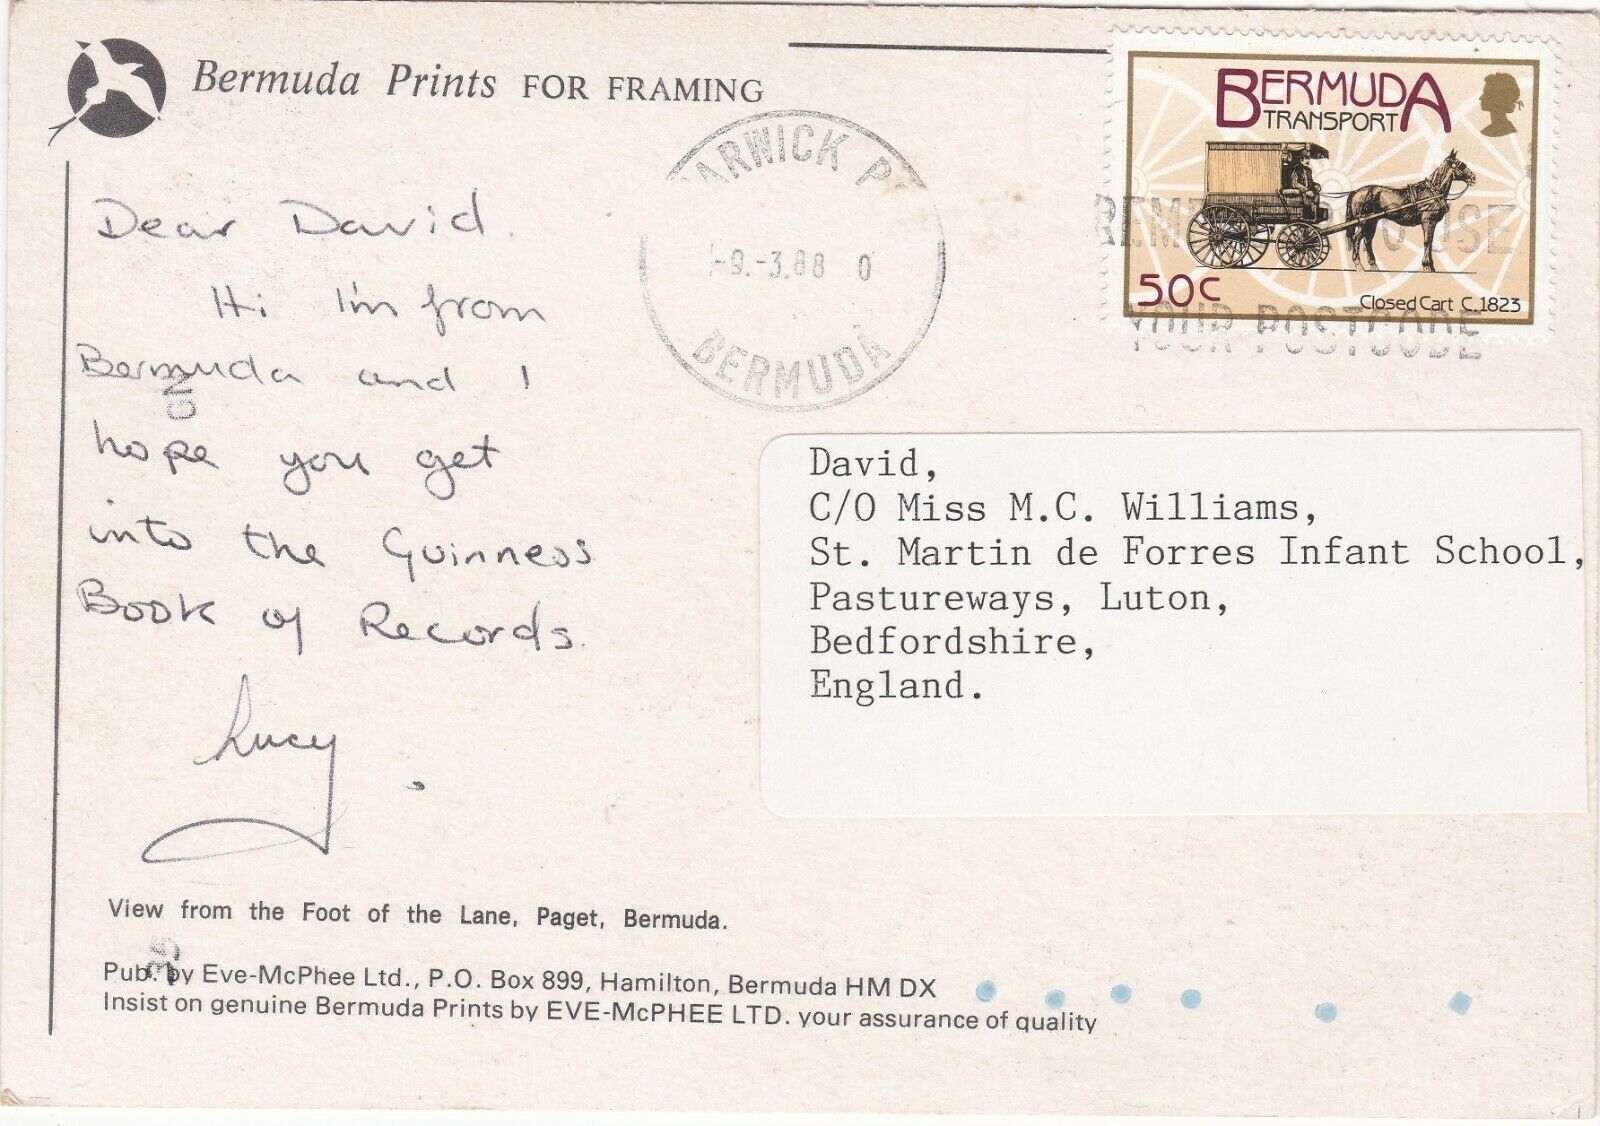 Bermuda Prints FOR FRAMING
BERMUDA
TRANSPORT
50c
Closed Cart C.1823
ARWICK P
-9.-3.88 0
BERMUDA
USE
YOUR POSTCODE
Dear David.
Hi I'm from
Bermuda and I
hope you get
into the Guinness
Book of Records.
Lucy.
David,
C/O Miss M.C. Williams,
St. Martin de Forres Infant School,
Pastureways, Luton,
Bedfordshire,
England.
View from the Foot of the Lane, Paget, Bermuda.
Pub. by Eve-McPhee Ltd., P.O. Box 899, Hamilton, Bermuda HM DX
Insist on genuine Bermuda Prints by EVE-McPHEE LTD. your assurance of quality